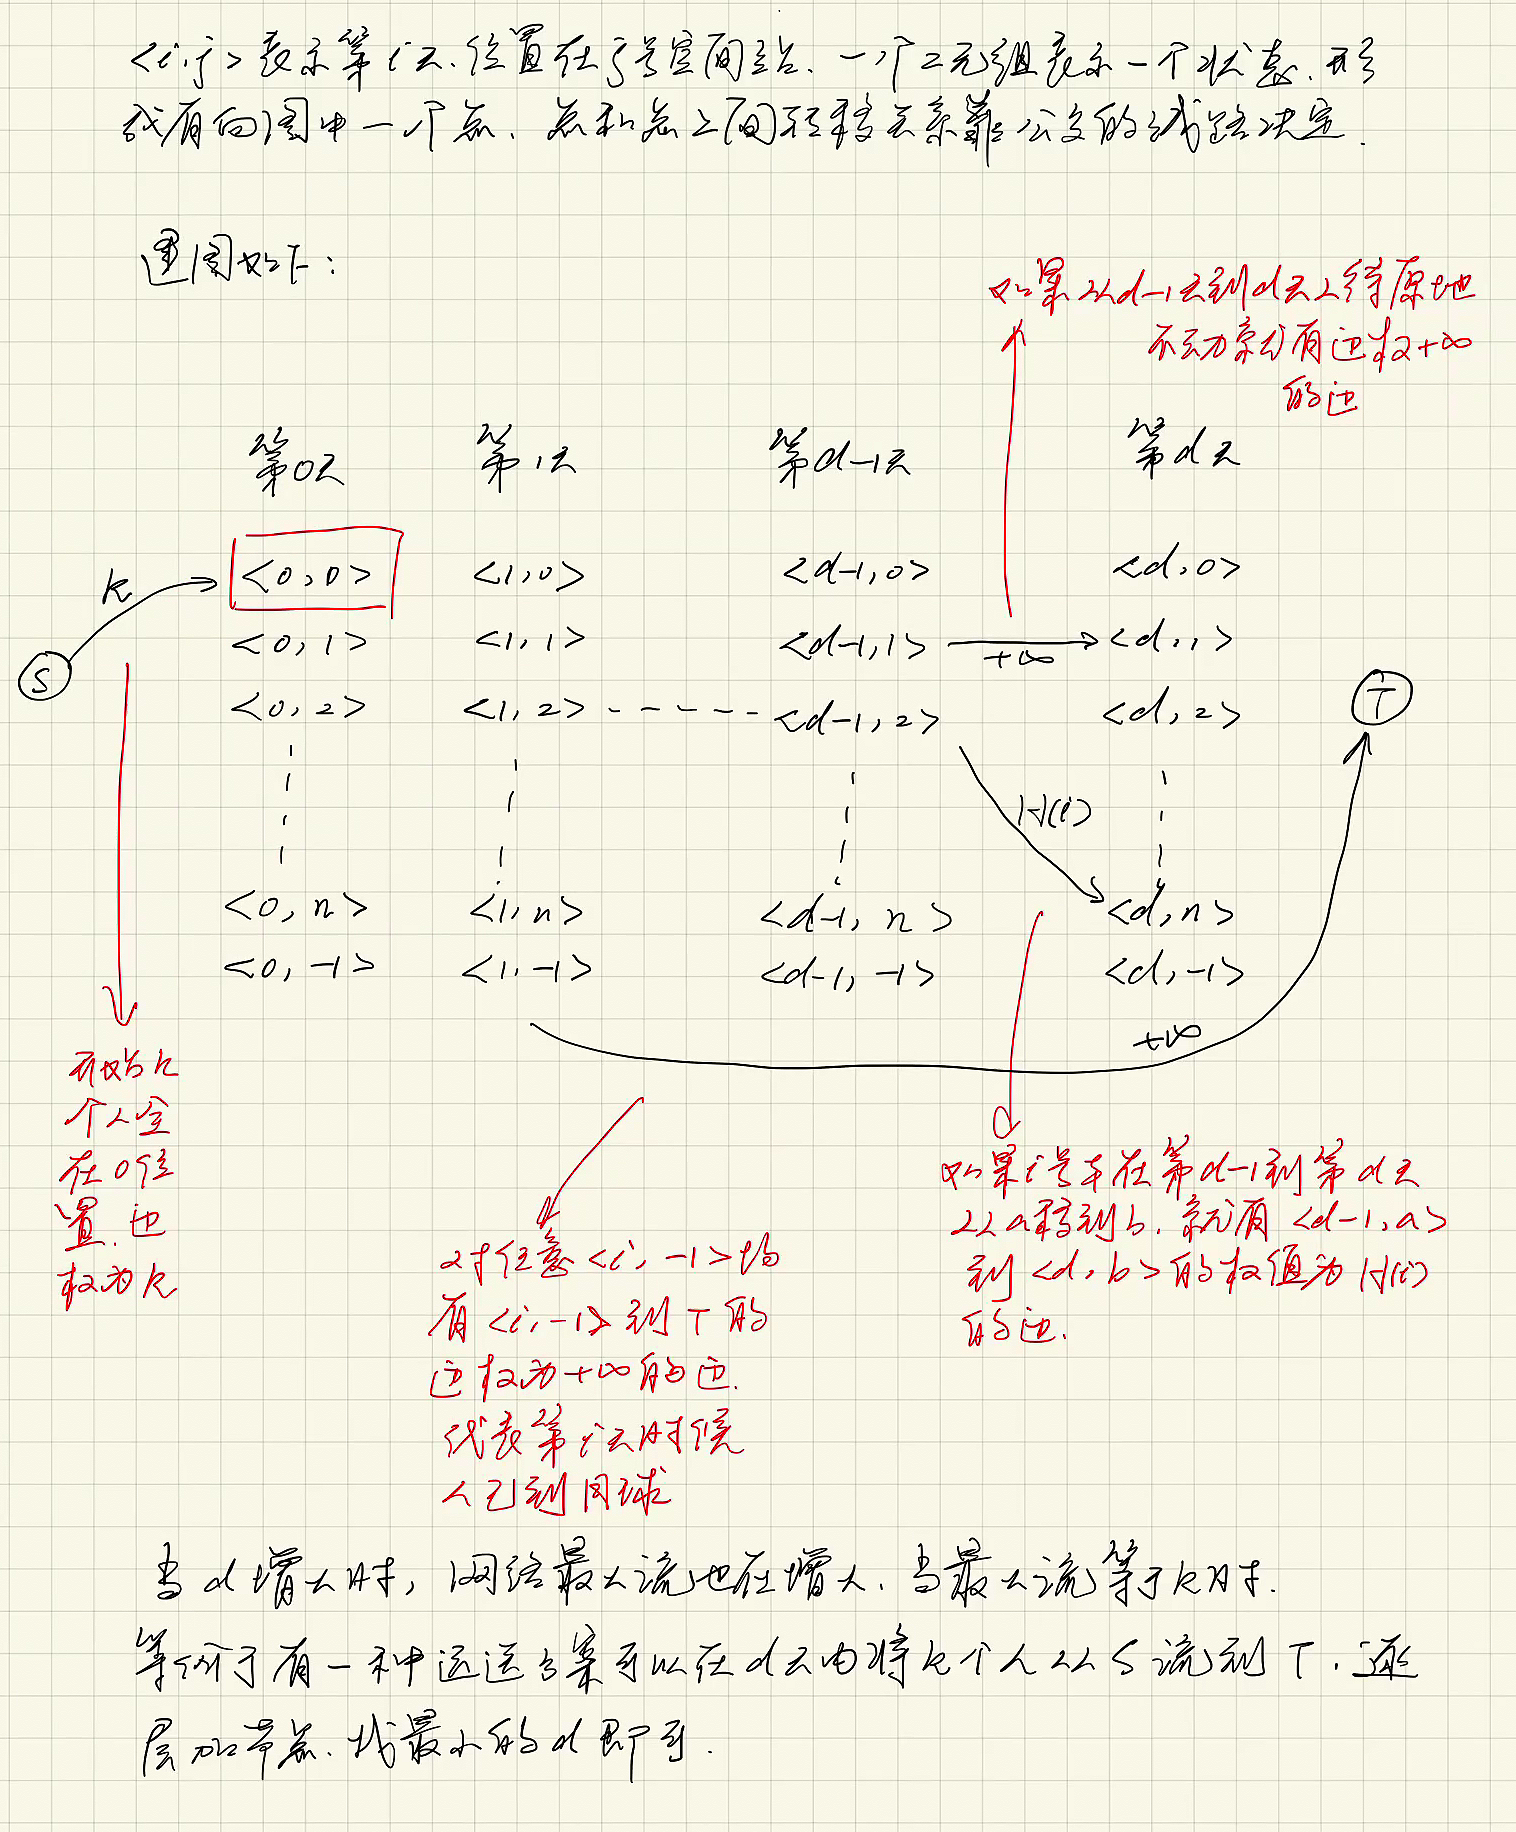 <i,j>表示第i天,位置在j号空间站、一个二元组表示一个状态.形
成有向图中一个点、点和点之间转移关系靠公交的线路决定.
建图如下:
如果从d-1天到d天人待原地
不动就有边权+∞
的边
第0天 第1天 第d-1天 第d天
k <0,0> <1,0> <d-1,0> <d,0>
<0,1> <1,1> <d-1,1> +∞ <d,1>
S
<0,2> <1,2> <d-1,2> <d,2> T
H(i)
<0,n> <1,n> <d-1,n> <d,n>
<0,-1> <1,-1> <d-1,-1> <d,-1>
+∞
开始k
个人全
在0位
置,边
权为k
对任意<i,-1>均
有<i,-1>到T的
边权为+∞的边.
代表第i天时候
人已到月球
如果i号车在第d-1到第d天
从a移到b,就有<d-1,a>
到<d,b>的权值为H(i)
的边.
当d增大时,网络最大流也在增大.当最大流等于k时.
等价于有一种运送方案可以在d天内将k个人从S流到T.逐
层加节点.找最小的d即可.